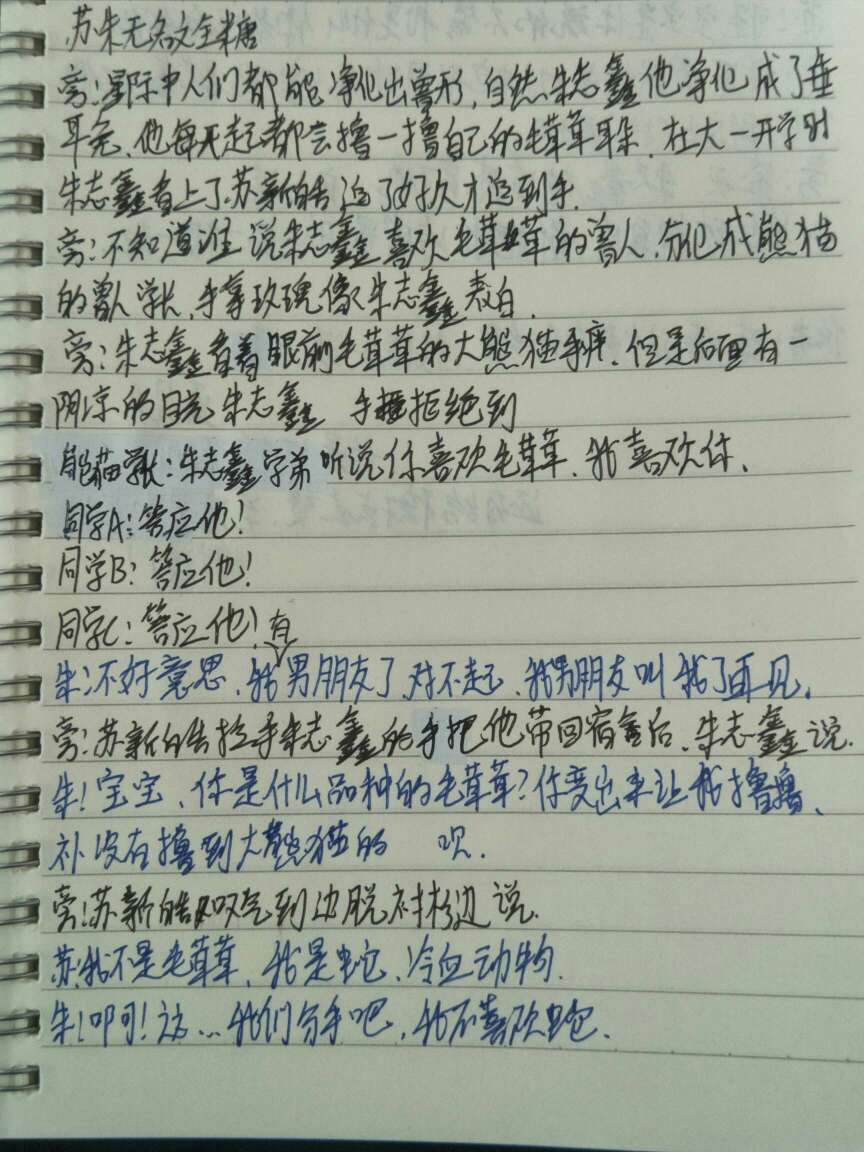 苏朱无名文全糖
旁:星际中人们都能净化出兽形,自然朱志鑫他净化成了垂
耳兔、他每天起都会撸一撸自己的毛茸茸耳朵、在大一开学时
朱志鑫看上了苏新皓追了好久才追到手.
旁:不知道谁说朱志鑫喜欢毛茸茸的兽人、分化成熊猫
的兽人学长,手拿玫瑰像朱志鑫表白.
旁:朱志鑫看着眼前毛茸茸的大熊猫手痒、但是后面有一
阴凉的目光朱志鑫 手拒绝到
熊猫学长:朱志鑫学弟听说你喜欢毛茸茸、我喜欢你、
同学A:答应他!
同学B:答应他!
同学C:答应他!
朱:不好意思、我有男朋友了、对不起、我男朋友叫我了再见、
旁:苏新皓拉手朱志鑫的手把他带回宿舍后、朱志鑫说.
朱!宝宝、你是什么品种的毛茸茸?你变出来让我撸撸、
补没有撸到大熊猫的
旁!苏新皓叹气到边脱衬衫边说.
苏:我不是毛茸茸、我是蛇、冷血动物.
朱!啊!这...我们分手吧、我不喜欢蛇.